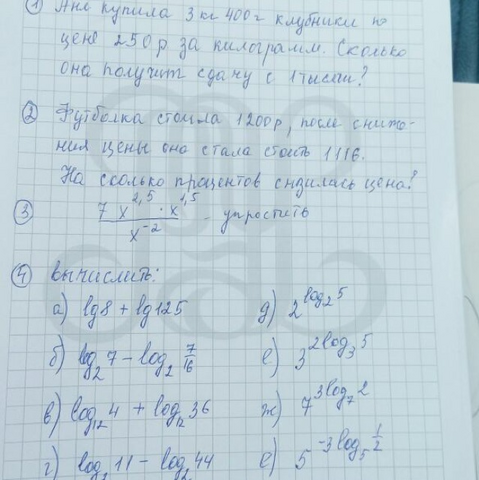 ① Аня купила 3 кг 400 г клубники по
цене 250 р за килограмм. Сколько
она получит сдачу с 1 тысячи?
② Футболка стоила 1200 р, после сниже-
ния цены она стала стоить 1116.
На сколько процентов снизилась цена?
③ 7 x^2,5 · x^1,5 / x^-2 - упростить
④ Вычислить:
а) lg 8 + lg 125
б) log₂ 7 - log₂ 7/16
в) log₁₂ 4 + log₁₂ 36
г) log₂ 11 - log₂ 44
д) 2^log₂ 5
е) 3^2log₃ 5
ж) 7^3log₇ 2
е) 5^-3log₅ 1/2